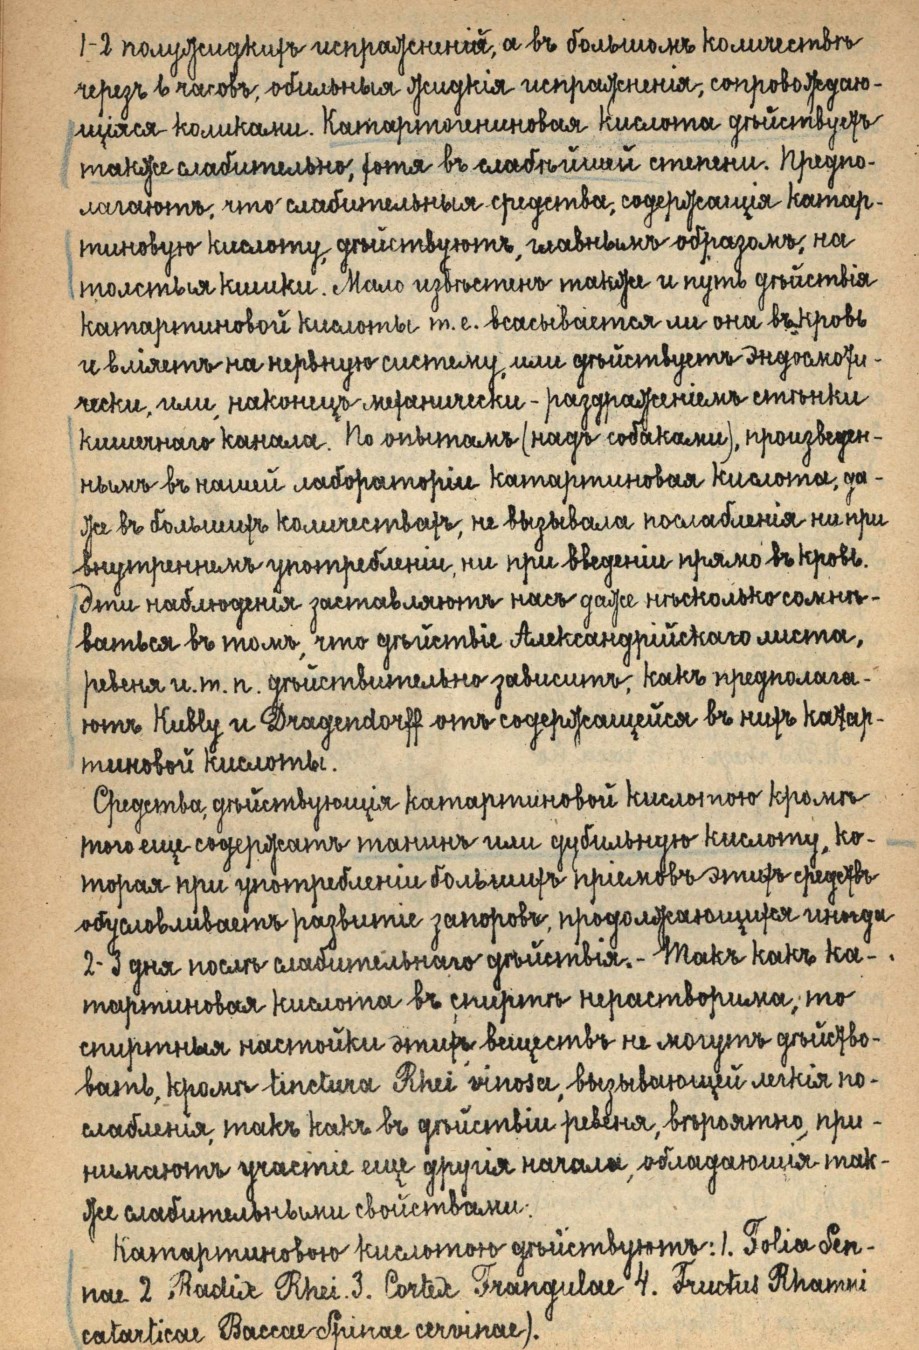 1-2 полужидкихъ испражненій, а въ большомъ количествѣ
черезъ 6 часовъ, обильныя жидкія испражненія, сопровождаю-
щіяся коликами. Катартогениновая кислота дѣйствуетъ
также слабительно, хотя въ слабѣйшей степени. Предпо-
лагаютъ, что слабительныя средства, содержащія катар-
тиновую кислоту, дѣйствуютъ, главнымъ образомъ, на
толстыя кишки. Мало извѣстенъ также и путь дѣйствія
катартиновой кислоты т.е. всасывается ли она въ кровь
и вліяетъ на нервную систему, или дѣйствуетъ эндосмоти-
чески, или, наконецъ механически - раздраженіемъ стѣнки
кишечнаго канала. По опытамъ (надъ собаками), произведен-
нымъ въ нашей лабораторіи катартиновая кислота, да-
же въ большихъ количествахъ, не вызывала послабленія ни при
внутреннемъ употребленіи, ни при введеніи прямо въ кровь.
Эти наблюденія заставляютъ насъ даже нѣсколько сомнѣ-
ваться въ томъ, что дѣйствіе Александрійскаго листа,
ревеня и.т.п. дѣйствительно зависитъ, какъ предполага-
ютъ Kubly и Dragendorff отъ содержащейся въ нихъ катар-
тиновой кислоты.
Средства, дѣйствующія катартиновой кислотою кромѣ
того еще содержатъ танинъ или дубильную кислоту, ко-
торая при употребленіи большихъ пріемовъ этихъ средствъ
обусловливаетъ развитіе запоровъ, продолжающихся иногда
2-3 дня послѣ слабительнаго дѣйствія. - Такъ какъ ка-
тартиновая кислота въ спиртѣ нерастворима, то
спиртныя настойки этихъ веществъ не могутъ дѣйство-
вать, кромѣ tinctura Rhei vinosa, вызывающей легкія по-
слабленія, такъ какъ въ дѣйствіи ревеня, вѣроятно, при-
нимаютъ участіе еще другія начала, обладающія так-
же слабительными свойствами.
Катартиновою кислотою дѣйствуютъ: 1. Folia Sen-
nae 2. Radix Rhei. 3. Cortex Frangulae 4. Fructus Rhamni
catarticae Baccae Spinae cervinae).